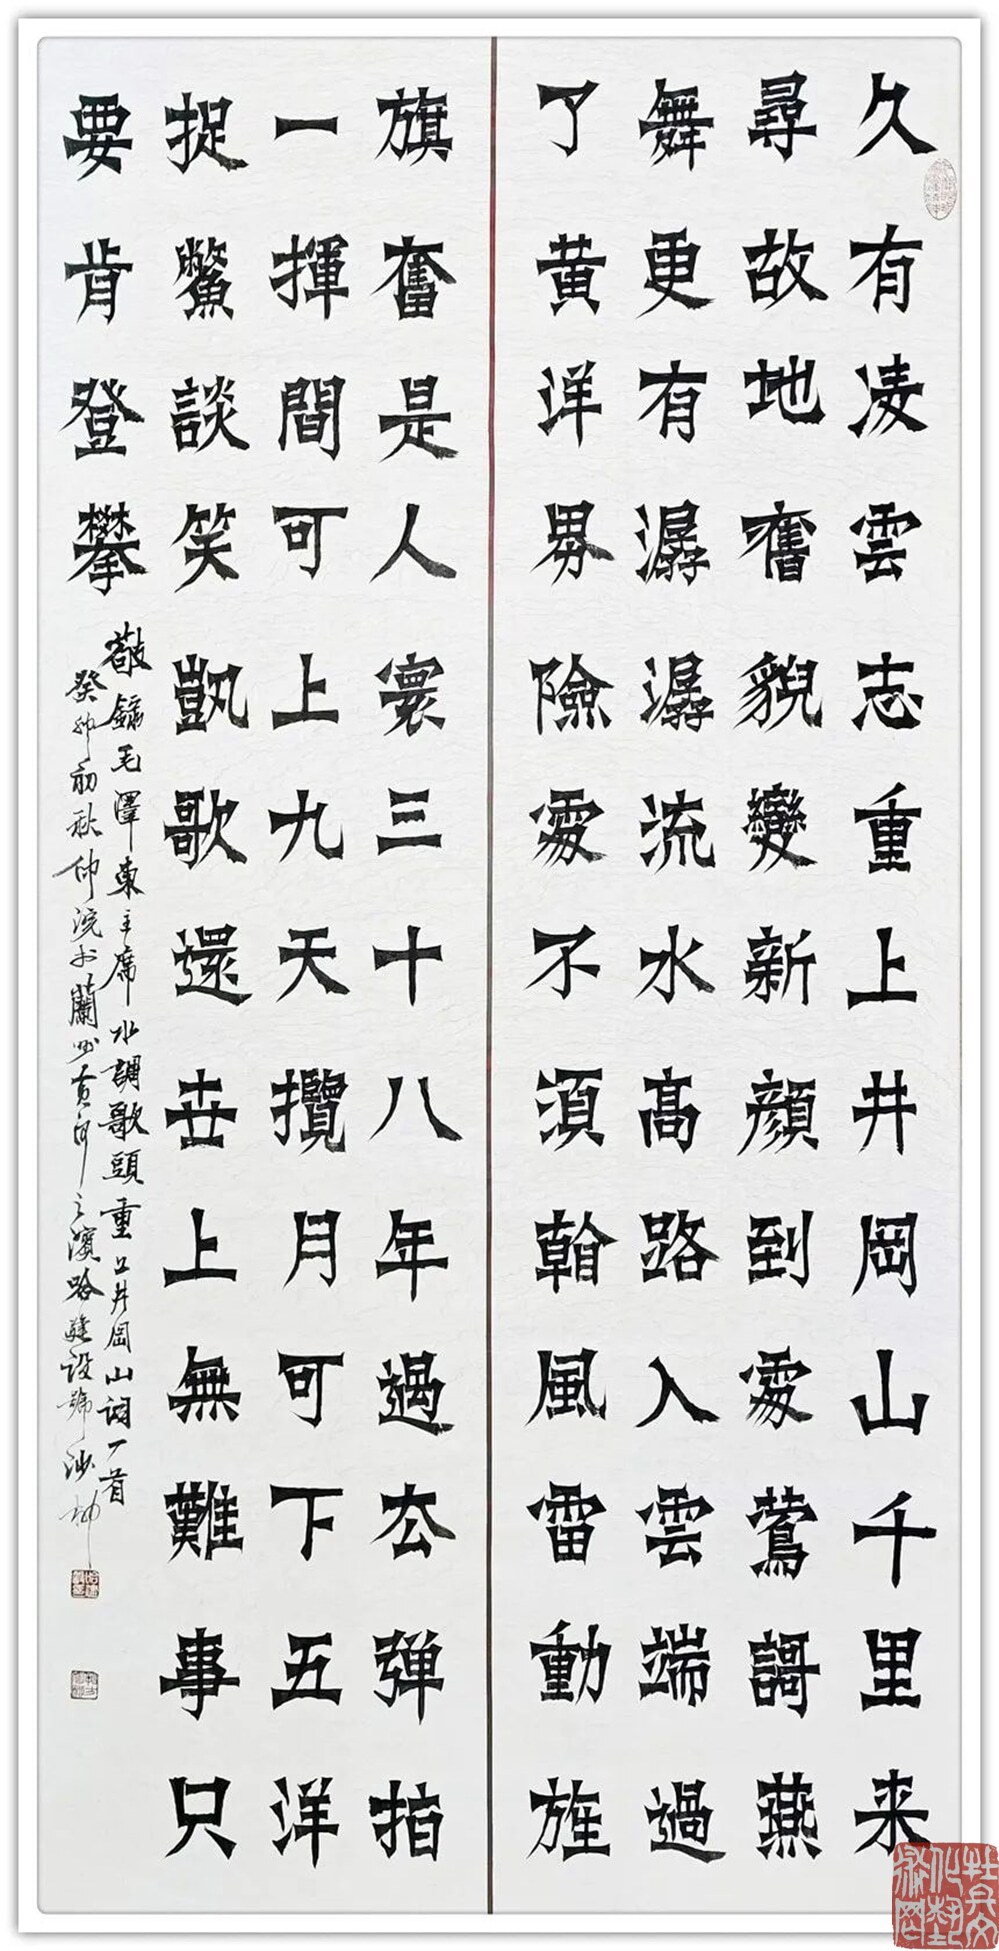 久有凌雲志重上井岡山千里来
尋故地舊貌變新顔到處鶯謌燕
舞更有潺潺流水高路入雲端過
了黄洋界險處不須㑹風雷動旌
旗奮是人寰三十八年過去弹指
一揮間可上九天攬月可下五洋
捉鱉談笑凱歌還世上無難事只
要肯登攀
敬錄毛澤東主席水調歌頭重上井岡山詞一首
癸卯初秋仲浣於蘭州黄河之濱